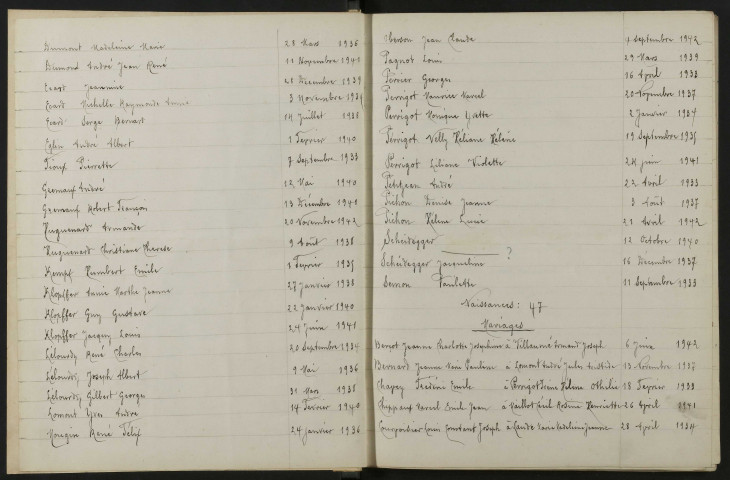 Dumont Madeleine Marie 28 Mars 1936
André Jean René 11 Novembre 1941
Ecard Jeannine 21 Décembre 1939
Ecard Michelle Raymonde Anna 3 Novembre
Ecard Serge Bernard 14 Juillet 1938
Eglin André Albert 1 Février 1940
Pierrette 7 Septembre 1933
Germaux André 12 Mai 1940
Germaux Robert François 13 Décembre 1941
Huguenard Armande 20 Novembre 1942
Huguenard Christiane Thérèse 9 Août 1938
Kempf Humbert Emile 1 Février 1935
Klopffer Annie Marthe Jeanne 27 janvier 1938
Klopffer Guy Gustave 22 janvier 1940
Klopffer Jacques Louis 24 juin 1941
Lélourdy René Charles 20 Septembre 1934
Lélourdy Joseph Albert 9 Mai 1936
Lélourdy Gilbert Georges 31 Mars 1938
Lomont Yves André 14 Février 1940
Mougin René Félix 24 janvier 1936
Jean Claude 4 Septembre 1942
Pagnot Louis 29 Mars 1939
Perrier Georges 26 April 1933
Perrigot Maurice Marcel 20 Novembre 1937
Perrigot Monique Yvette 2 Janvier 1934
Perrigot Nelly Héliane Hélène 19 Septembre 1935
Perrigot Liliane Violette 24 juin 1941
Petitjean André 22 Avril 1933
Pichon Denise Jeanne 3 Août 1937
Pichon Hélène Lucie 21 Avril 1942
Scheidegger ? 12 Octobre 1940
Scheidegger Jacqueline 16 Décembre 1937
Semon Paulette 11 Septembre 1933
Naissances : 47
Mariages
Jeanne Charlotte Joséphine à Villaumé Armand Joseph 6 juin 1942
Bernard Jeanne Marie à Lomont André Jules Aristide 13 Novembre 1937
Frédéric Emile à Perrigot Hélène Othelie 18 Février 1933
Marcel Emile Jean à Henriette 26 April 1941
Louis Constant Joseph à Claude Marie Madeleine Jeanne 28 April 1934